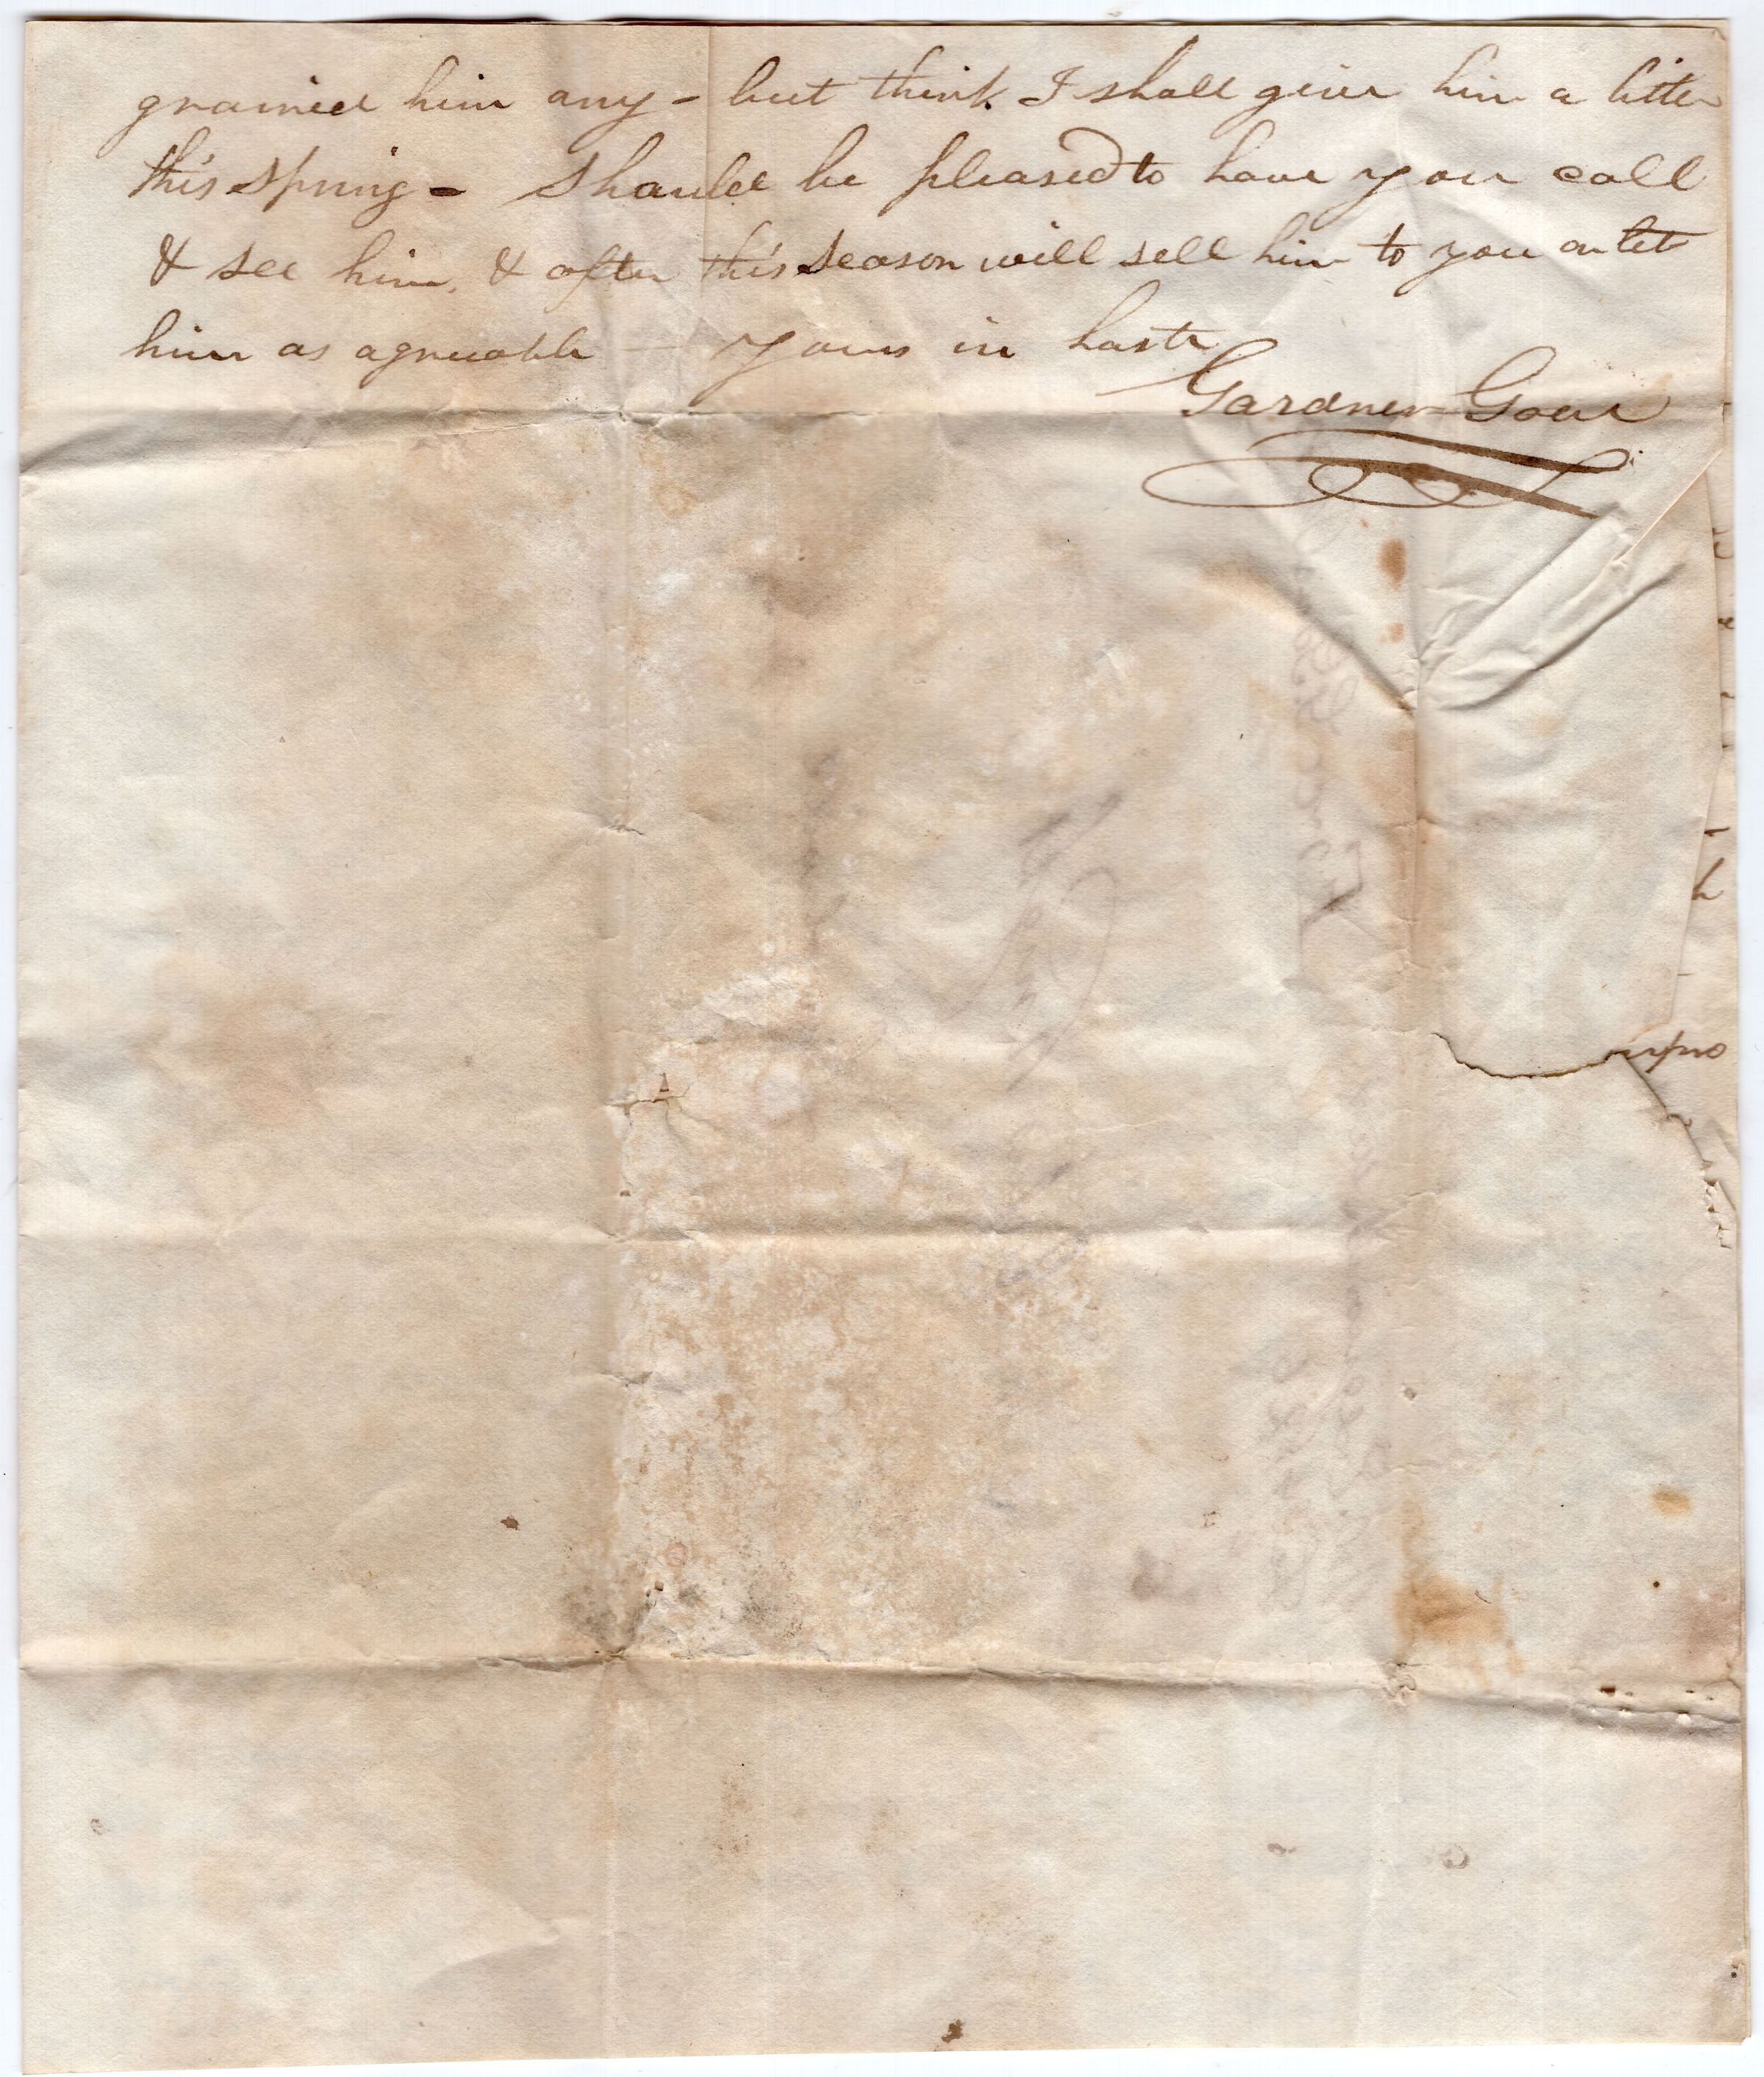 grained him any - but think I shall give him a little
this spring - Should be pleased to have you call
& see him, & after this season will sell him to you or let
him as agreeable — yours in haste
Gardner Gove
h